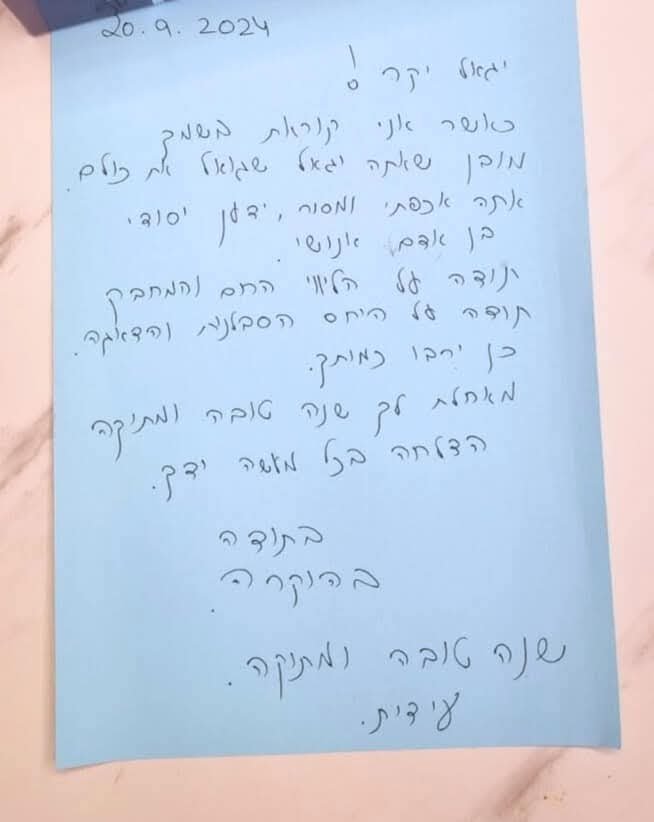 20.9.2024
יגאל יקר !
כאשר אני קוראת בשמך
מובן שאתה יגאל שגואל את כולם.
אתה אכפתי ומסור, ידען יסודי
בן אדם אנושי.
תודה על הליווי החם והמחבק
תודה על היחס הסבלנות והדאגה.
כן ירבו כמותך.
מאחלת לך שנה טובה ומתוקה
הצלחה בכל מעשה ידך.
בתודה
בהוקרה.
שנה טובה ומתוקה.
עידית.